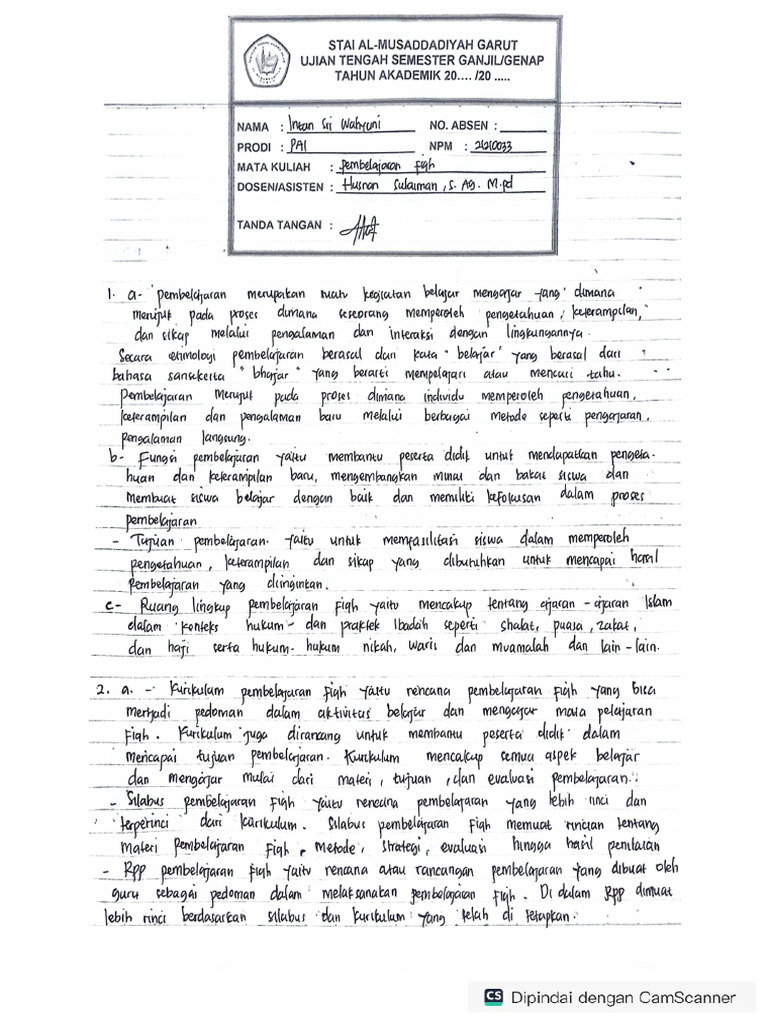 STAI AL-MUSADDADIYAH GARUT
UJIAN TENGAH SEMESTER GANJIL/GENAP
TAHUN AKADEMIK 20.... /20 .....
NAMA : Intan Sri Wahyuni NO. ABSEN :
PRODI : PAI NPM :
MATA KULIAH : pembelajaran fiqh
DOSEN/ASISTEN : Husnan Sulaiman, S. Ag. M.pd
TANDA TANGAN :
1. a- pembelajaran merupakan suatu kegiatan belajar mengajar yang dimana
merujuk pada proses dimana seseorang memperoleh pengetahuan, keterampilan,
dan sikap melalui pengalaman dan interaksi dengan lingkungannya.
Secara etimologi pembelajaran berasal dari kata "belajar" yang berasal dari
bahasa sansekerta "bhajar" yang berarti mempelajari atau mencari tahu.
Pembelajaran merujuk pada proses dimana individu memperoleh pengetahuan,
keterampilan dan pengalaman baru melalui berbagai metode seperti pengajaran,
pengalaman langsung.
b- Fungsi pembelajaran yaitu membantu peserta didik untuk mendapatkan pengeta-
huan dan keterampilan baru, mengembangkan minat dan bakat siswa dan
membuat siswa belajar dengan baik dan memiliki kefokusan dalam proses
pembelajaran
- Tujuan pembelajaran. yaitu untuk memfasilitasi siswa dalam memperoleh
pengetahuan, keterampilan dan sikap yang dibutuhkan untuk mencapai hasil
pembelajaran yang diinginkan.
c- Ruang lingkup pembelajaran fiqh yaitu mencakup tentang ajaran-ajaran Islam
dalam konteks hukum- dan praktek Ibadah seperti shalat, puasa, zakat,
dan haji serta hukum-hukum nikah, waris dan muamalah dan lain-lain.
2. a. - Kurikulum pembelajaran fiqh yaitu rencana pembelajaran fiqh yang bisa
menjadi pedoman dalam aktivitas belajar dan mengajar mata pelajaran
fiqh. Kurikulum juga dirancang untuk membantu peserta didik dalam
mencapai tujuan pembelajaran. Kurikulum mencakup semua aspek belajar
dan mengajar mulai dari materi, tujuan, dan evaluasi pembelajaran.
- Silabus pembelajaran fiqh yaitu rencana pembelajaran yang lebih rinci dan
terperinci dari kurikulum. Silabus pembelajaran fiqh memuat rincian tentang
materi pembelajaran fiqh, metode, strategi, evaluasi hingga hasil penilaian
- Rpp pembelajaran fiqh yaitu rencana atau rancangan pembelajaran yang dibuat oleh
guru sebagai pedoman dalam melaksanakan pembelajaran fiqh. Di dalam Rpp dimuat
lebih rinci berdasarkan silabus dan kurikulum yang telah di tetapkan.
CS Dipindai dengan CamScanner